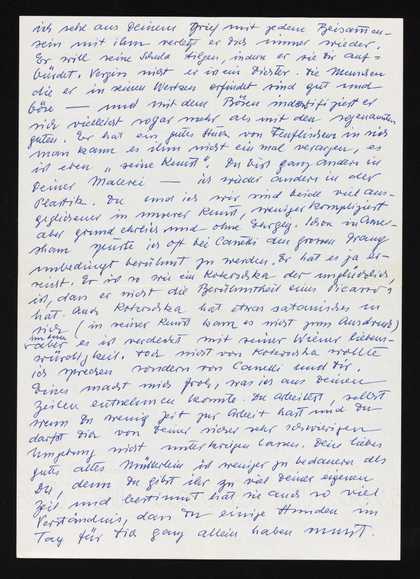 ich sehe aus Deinem Brief mit jedem Beisammen-
sein mit ihm verletzt er Dich immer wieder.
Er will seine Schuld tilgen, indem er sie Dir auf-
bürdet. Vergiss nicht er ist ein Dichter. Die Menschen
die er in seinen Werken erfindet sind gut und
böse — und mit dem Bösen indentifiziert er
sich vielleicht sogar mehr als mit den sogenannten
guten. Er hat ein gutes Stück von Teuflischem in sich
man kann es ihm nicht ein mal versagen, es
ist eben „seine Kunst". Du bist ganz anders in
Deiner Malerei — ich wieder anders in der
Plastik. Du und ich wir sind beide viel aus-
geglichener in unserer Kunst, weniger kompliziert
aber grund ehrlich und ohne Ehrgeiz. Schon in Amer-
sham spürte ich oft bei Canetti den grossen Drang
unbedingt berühmt zu werden. Er hat es ja er-
reicht. Er ist so wie ein Kokoschka der unglücklich
ist, dass er nicht die Berühmtheit eines Picasso's
hat. Auch Kokoschka hat etwas satanisches in
sich (in seiner Kunst kam es nicht zum Ausdruck)
aber es ist verdeckt mit seiner Wiener Liebens-
würdigkeit. Doch nicht von Kokoschka wollte
ich sprechen sondern von Canetti und Dir.
Eines macht mich froh, was ich aus Deinen
Zeilen entnehmen konnte. Du arbeitest, selbst
wenn Du wenig Zeit zur Arbeit hast und Du
darfst Dich von Deiner sicher sehr schwierigen
Umgebung nicht unterkriegen lassen. Dein liebes
gutes altes Mütterlein ist weniger zu bedauern als
Du, denn Du gibst ihr zu viel Deiner eigenen
Zeit und bestimmt hat sie auch so viel
Verständnis, dass Du einige Stunden im
Tag für Dich ganz allein haben musst.